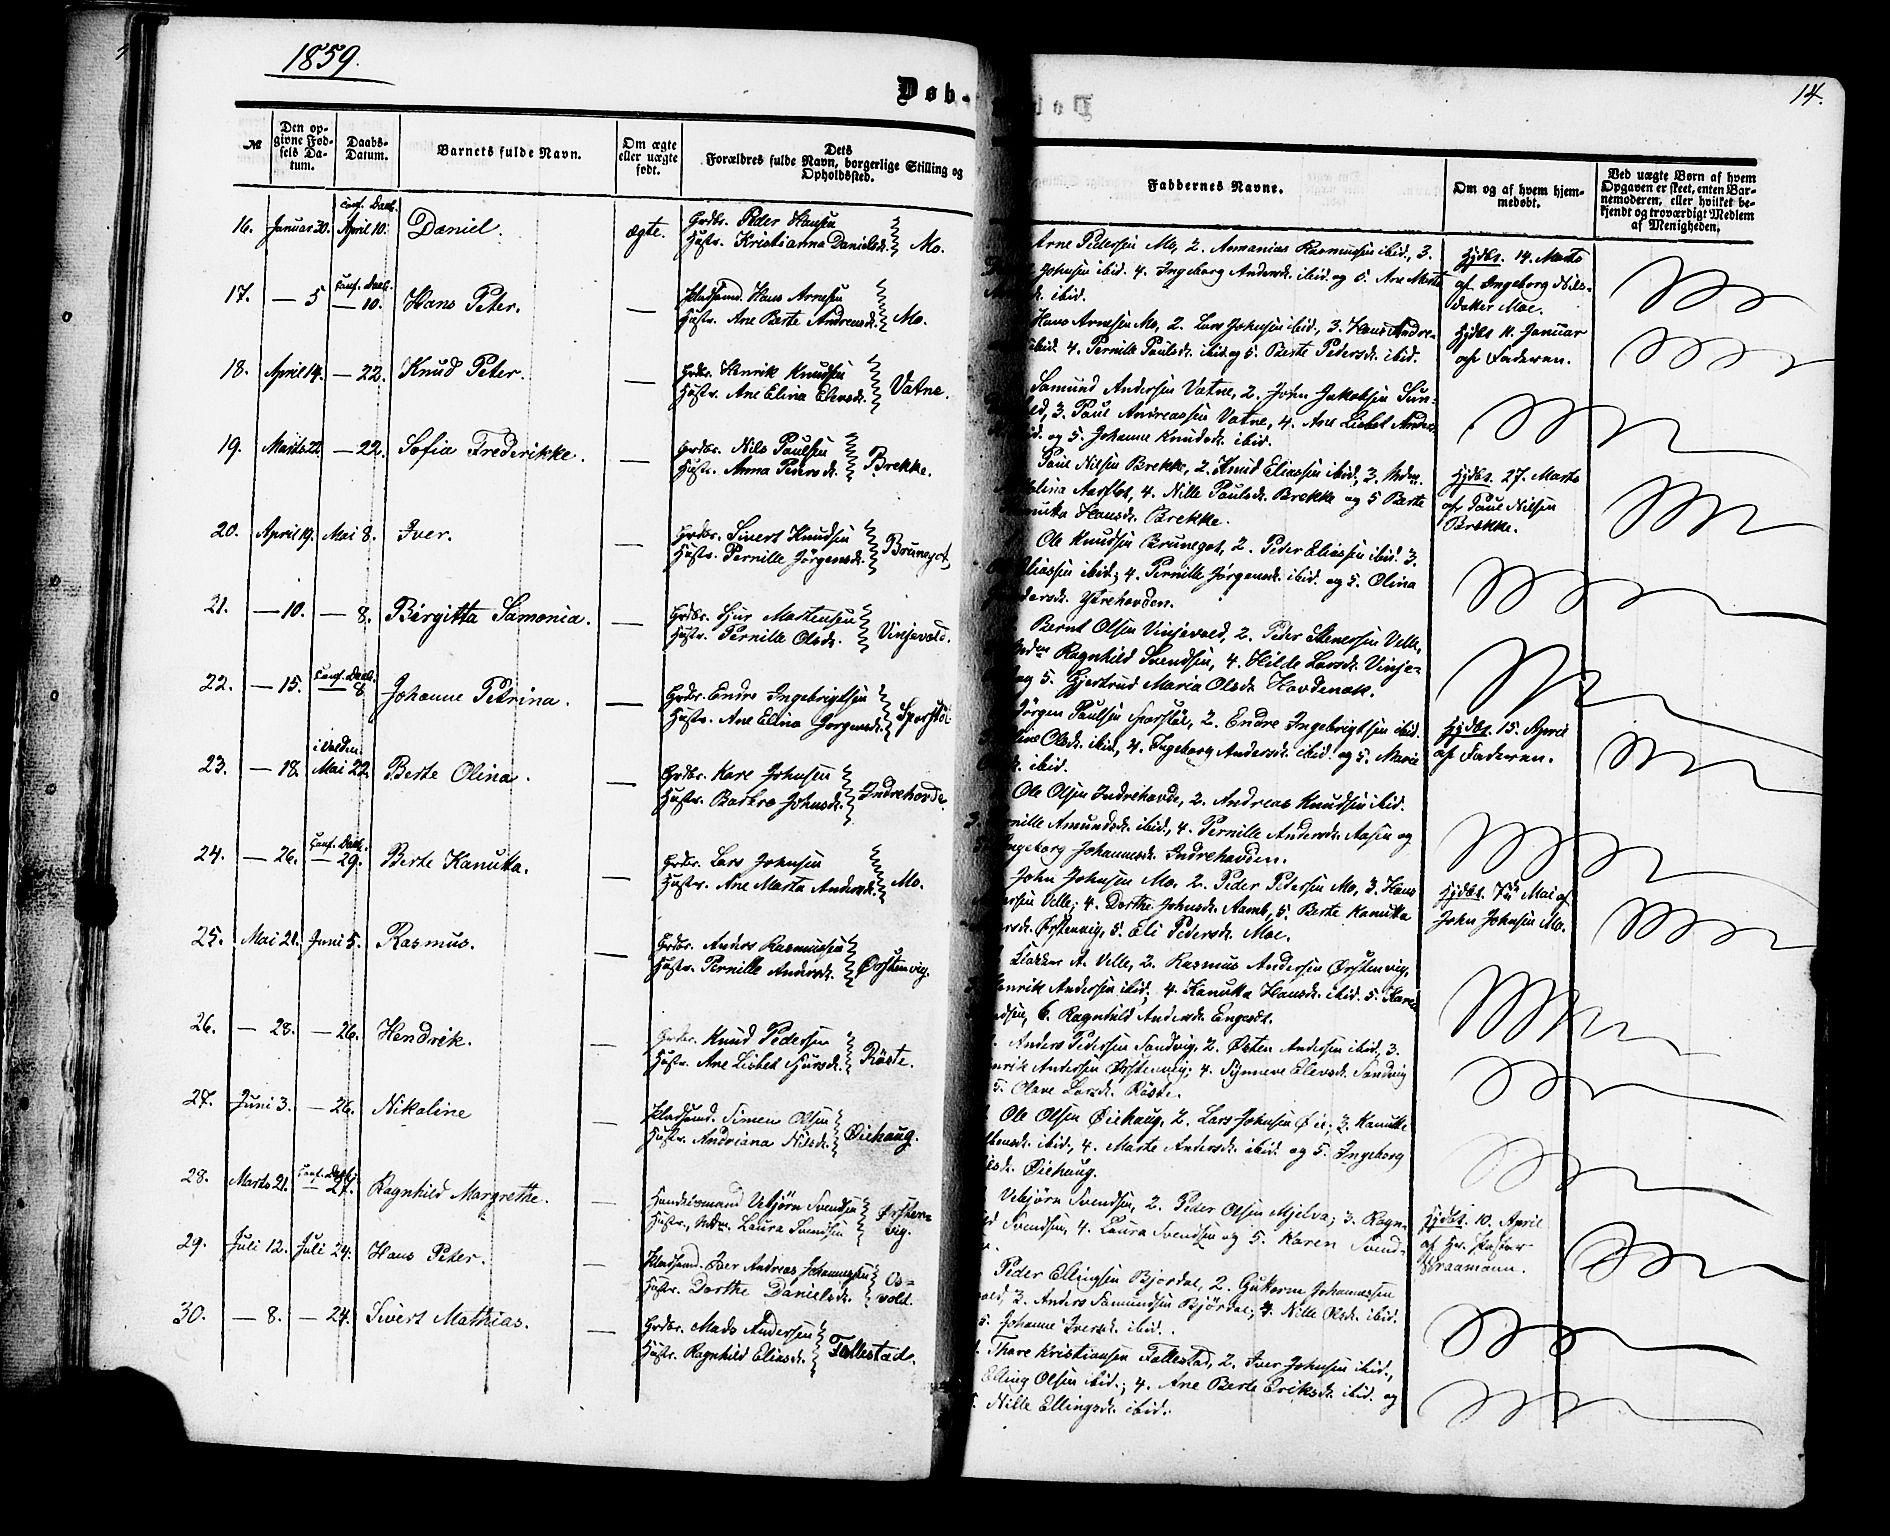 1859.
Døb-
14.
№
Den opgivne Fødsels Datum.
Daabs-Datum.
Barnets fulde Navn.
Om ægte eller uægte født.
Dets Forældres fulde Navn, borgerlige Stilling og Opholdssted.
Faddernes Navne.
Om og af hvem hjemmedøbt.
Ved uægte Børn af hvem Opgaven er skeet, enten Barnemoderen, eller hvilket bekjendt og troværdigt Medlem af Menigheden.
16. Januar 20. Conf. Daab. April 10. Daniel. ægte.
Grdbr. Peder Hansen
Hustr. Kristianna Danielsd. Mo.
Arne Pedersen Mo, 2. Annanias Rasmussen ibid., 3.
Johnsen ibid. 4. Ingeborg Andersd. ibid. og 5. Ane Marte
ibid.
Hjdbt. 14. Marts
af Ingeborg Nils-
datter Moe.
17. — 5 Conf. Daab. — 10. Hans Peter. —
Pladsmd. Hans Arnesen
Hustr. Ane Berte Andreasd. Mo.
Hans Arnesen Mo, 2. Lars Johnsen ibid., 3. Hans Andre-
ibid. 4. Pernille Paulsd. ibid. og 5. Berte Pedersd. ibid.
Hjdbt. 11. Januar
af Faderen.
18. April 14. — 22. Knud Peter. —
Grdbr. Henrik Knudsen
Hustr. Ane Elina Elevsd. Vatne.
Samund Andersen Vatne, 2. John Jakobsen Sun-
3. Paul Andreassen Vatne, 4. Ane Lisbet Andr-
og 5. Johanne Knudsd. ibid.
19. Marts 22. — 22. Sofia Frederikke. —
Grdbr. Nils Paulsen
Hustr. Anna Petersd. Brekke.
Paul Nilsen Brekke, 2. Knud Eliassen ibid., 3. Mdm.
Aarflot, 4. Nille Paulsd. Brekke og 5 Berte
Hansd. Brekke.
Hjdbt. 27. Marts
af Paul Nilsen
Brekke.
20. April 19. Mai 8. Iver. —
Grdbr. Sivert Knudsen
Hustr. Pernille Jørgensd. Brunegot,
Ole Knudsen Brunegot, 2. Peder Eliassen ibid. 3.
Eliassen ibid; 4. Pernille Jørgensd. ibid. og 5. Olina
Ytrehovden.
21. — 10. — 8. Birgitta Samonia. —
Grdbr. Sjur Martensen
Hustr. Pernille Olsd. Vinjevold.
Bernt Olsen Vinjevold, 2. Peder Stenersen Velle,
Ragnhild Svendsen, 4. Hilde Larsd. Vinje-
og 5. Gjertrud Maria Olsd. Hovdenak.
22. — 15. Conf. Daab. — 8. Johanne Petrina. —
Grdbr. Endre Ingebrigtsen
Hustr. Ane Elina Jørgensd. Sporstøl
Jørgen Paulsen Sporstøl, 2. Endre Ingebrigtsen ibid.
Olsd. ibid, 4. Ingeborg Andersd. ibid. og 5. Marie
ibid.
Hjdbt. 15. April
af Faderen.
23. — 18. i Volden Mai 22. Berte Olina. —
Grdbr. Kare Johnsen
Hustr. Barbro Johnsd. Indrehovde.
Ole Olsen Indrehovde, 2. Andreas Knudsen ibid.
3. Amundsd. ibid., 4. Pernille Andersd. Aasen og
Ingeborg Johannesd. Indrehovden.
24. — 26. Conf. Daab. — 29. Berte Kanutta. —
Grdbr. Lars Johnsen
Hustr. Ane Marta Andersd. Mo.
John Johnsen Mo, 2. Peder Pedersen Mo, 3. Hans
Velle; 4. Dorthe Johnsd. Aamb, 5. Berte Kanutta
Ørstenvig, 5. Eli Pedersd. Moe.
Hjdbt. 7de Mai af
John Johnsen Mo.
25. Mai 21. Juni 5. Rasmus. —
Grdbr. Anders Rasmussen
Hustr. Pernille Andersd. Ørstenvig.
A. Velle, 2. Rasmus Andersen Ørstenvig,
Henrik Andersen ibid; 4. Kanutta Hansd. ibid. 5. Karen
6. Ragnhild Andersd. Engeset.
26. — 28. — 26. Hendrik. —
Grdbr. Knud Pedersen
Hustr. Ane Lisbet Sjursd. Røste.
Anders Pedersen Sandvig, 2. Østen Andersen ibid, 3.
Andersen Ørstenvig; 4. Synneve Elevsd. Sandvig
5. Olave Larsd. Røste.
27. Juni 3. — 26. Nikoline —
Pladsmd. Simen Olsen
Hustr. Andriana Nilsd. Øiehaug.
Ole Olsen Øiehaug, 2. Lars Johnsen Øie, 3. Kanutte
ibid., 4. Marte Andersd. ibid. og 5. Ingeborg
Øiehaug.
28. Marts 21. Conf. Daab. — 27. Ragnhild Margrethe. —
Handelsmand Vebjørn Svendsen
Hustr., Mdm. Laura Svendsen Ørsten-
vig.
Vebjørn Svendsen, 2. Peder Olsen Mjelva; 3. Ragn-
Svendsen, 4. Laura Svendsen og 5. Karen Svend-
Hjdbt. 10. April
af Hr. Pastor
Vraamann.
29. Juli 12. Juli 24. Hans Peter. —
Pladsmd. Iver Andreas Johannessen
Hustr. Dorthe Danielsd. Os-
vold.
Peder Ellingsen Bjørdal, 2. Guttorm Johannessen
3. Anders Samundsen Bjørdal; 4. Nille Olsd. ibid.
5. Johanne Iversd. ibid.
30. — 8. — 24. Sivert Mathias. —
Grdbr. Mads Andersen
Hustr. Ragnhild Eliasd. Follestad.
Thore Kristiansen Follestad, 2. Iver Johnsen ibid.,
Elling Olsen ibid.; 4. Ane Berte Eriksd. ibid. og
5. Nille Ellingsd. ibid.